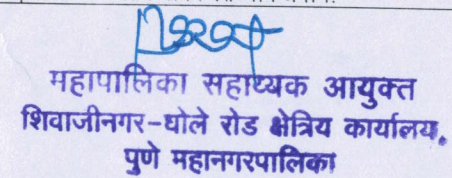 महापालिका सहाय्यक आयुक्त
शिवाजीनगर-घोले रोड क्षेत्रिय कार्यालय.
पुणे महानगरपालिका